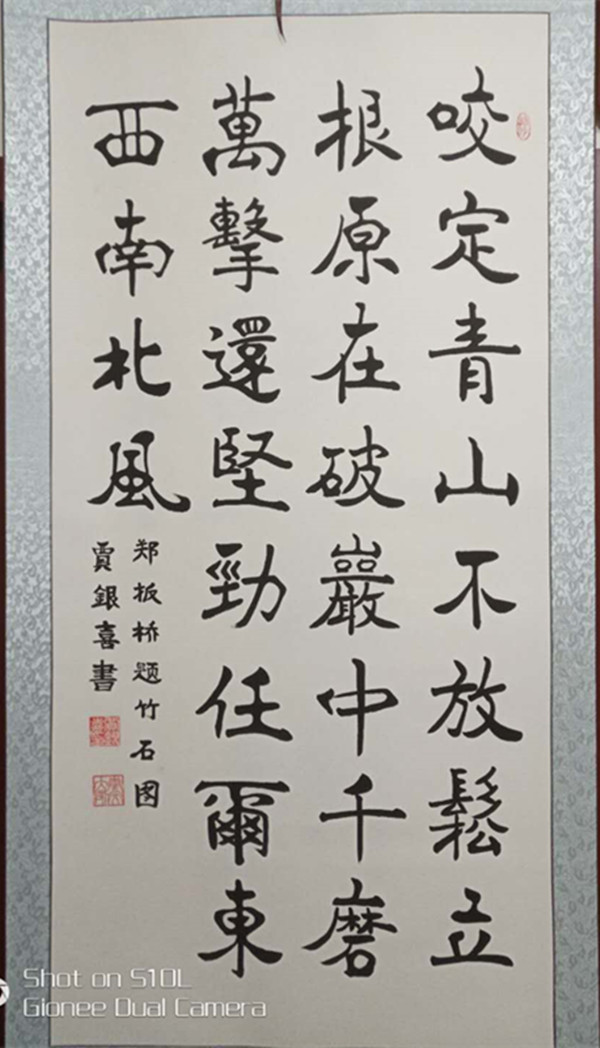 咬定青山不放鬆立
根原在破巖中千磨
萬擊還堅勁任爾東
西南北風
郑板桥题竹石图
賈銀喜書
Shot on S10L
Gionee Dual Camera